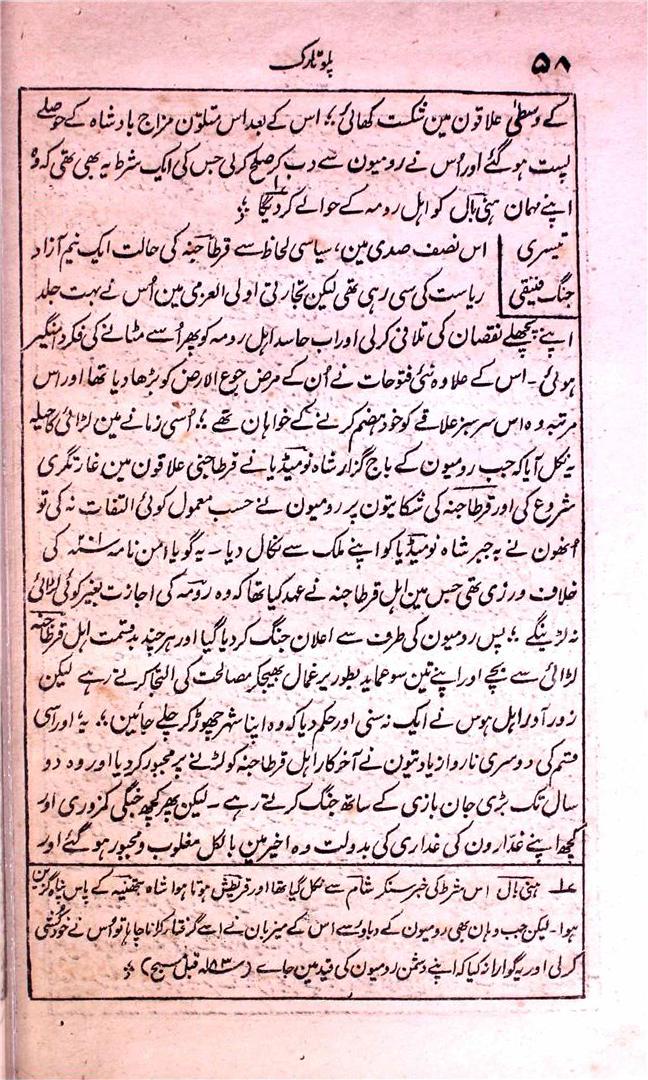 ۵۸
پلوٹارک
کے وسطیٰ علاقون مین شکست کھائی ؛ اس کے بعد اس متلوّن مزاج بادشاہ کے حوصلے
پست ہو گئے اور اُس نے رومیون سے دب کر صلح کر لی جس کی ایک شرط یہ بھی تھی کہ وہ
اپنے مہمان ہنی بال کو اہل رومہ کے حوالے کر دیگا ؛
تیسری
جنگ فنیقی
اس نصف صدی مین، سیاسی لحاظ سے قرطاجنہ کی حالت ایک نیم آزاد
ریاست کی سی رہی تھی لیکن تجارتی اولی العزمی مین اُس نے بہت جلد
اپنے پچھلے نقصان کی تلافی کر لی اور اب حاسد اہل رومہ کو پھر اُسے مٹانے کی فکر دامنگیر
ہوئی ۔ اس کے علاوہ نئی فتوحات نے اُن کے مرض جوع الارض کو بڑھا دیا تھا اور اس
مرتبہ وہ اس سرسبز علاقے کو خود ہضم کرنے کے خواہان تھے ؛ اُسی زمانے مین لڑائی کا حیلہ
یہ نکل آیا کہ جب رومیون کے باج گزار شاہ نومیڈیا نے قرطاجنی علاقون مین غارتگری
شروع کی اور قرطاجنہ کی شکایتون پر رومیون نے حسب معمول کوئی التفات نہ کی تو
اُنھون نے بہ جبر شاہ نومیڈیا کو اپنے ملک سے نکال دیا ۔ یہ گویا امن نامہ سنہ ۲۰۱ کی
خلاف ورزی تھی جس مین اہل قرطاجنہ نے عہد کیا تھا کہ وہ رومہ کی اجازت بغیر کوئی لڑائی
نہ لڑینگے ؛ پس رومیون کی طرف سے اعلان جنگ کر دیا گیا اور ہر چند بدقسمت اہل قرطاجنہ
لڑائی سے بچے اور اپنے تین سو عماید بطور یرغمال بھیجکر مصالحت کی التجا کرتے رہے لیکن
زور آور اہل ہوس نے ایک نہ سنی اور حکم دیا کہ وہ اپنا شہر چھوڑ کر چلے جائین ؛ یہ اور اسی
قسم کی دوسری ناروا زیادتیون نے آخر کار اہل قرطاجنہ کو لڑنے پر مجبور کر دیا اور وہ دو
سال تک بڑی جان بازی کے ساتھ جنگ کرتے رہے ۔ لیکن پھر کچھ جنگی کمزوری اور
کچھ اپنے غدّارون کی غداری کی بدولت وہ اخیر مین بالکل مغلوب و مجبور ہو گئے اور
۱ ہنی بال اس شرط کی خبر سنکر شام سے نکل گیا تھا اور قریطش ہوتا ہوا شاہ بتھنیہ کے پاس پناہ گزین
ہوا ۔ لیکن جب وہان بھی رومیون کے دباؤ سے اس کے میزبان نے اسے گرفتار کرانا چاہا تو اُس نے خودکشی
کر لی اور یہ گوارا نہ کیا کہ اپنے دشمن رومیون کی قید مین جائے (سنہ ۱۸۳ قبل مسیح) ؛